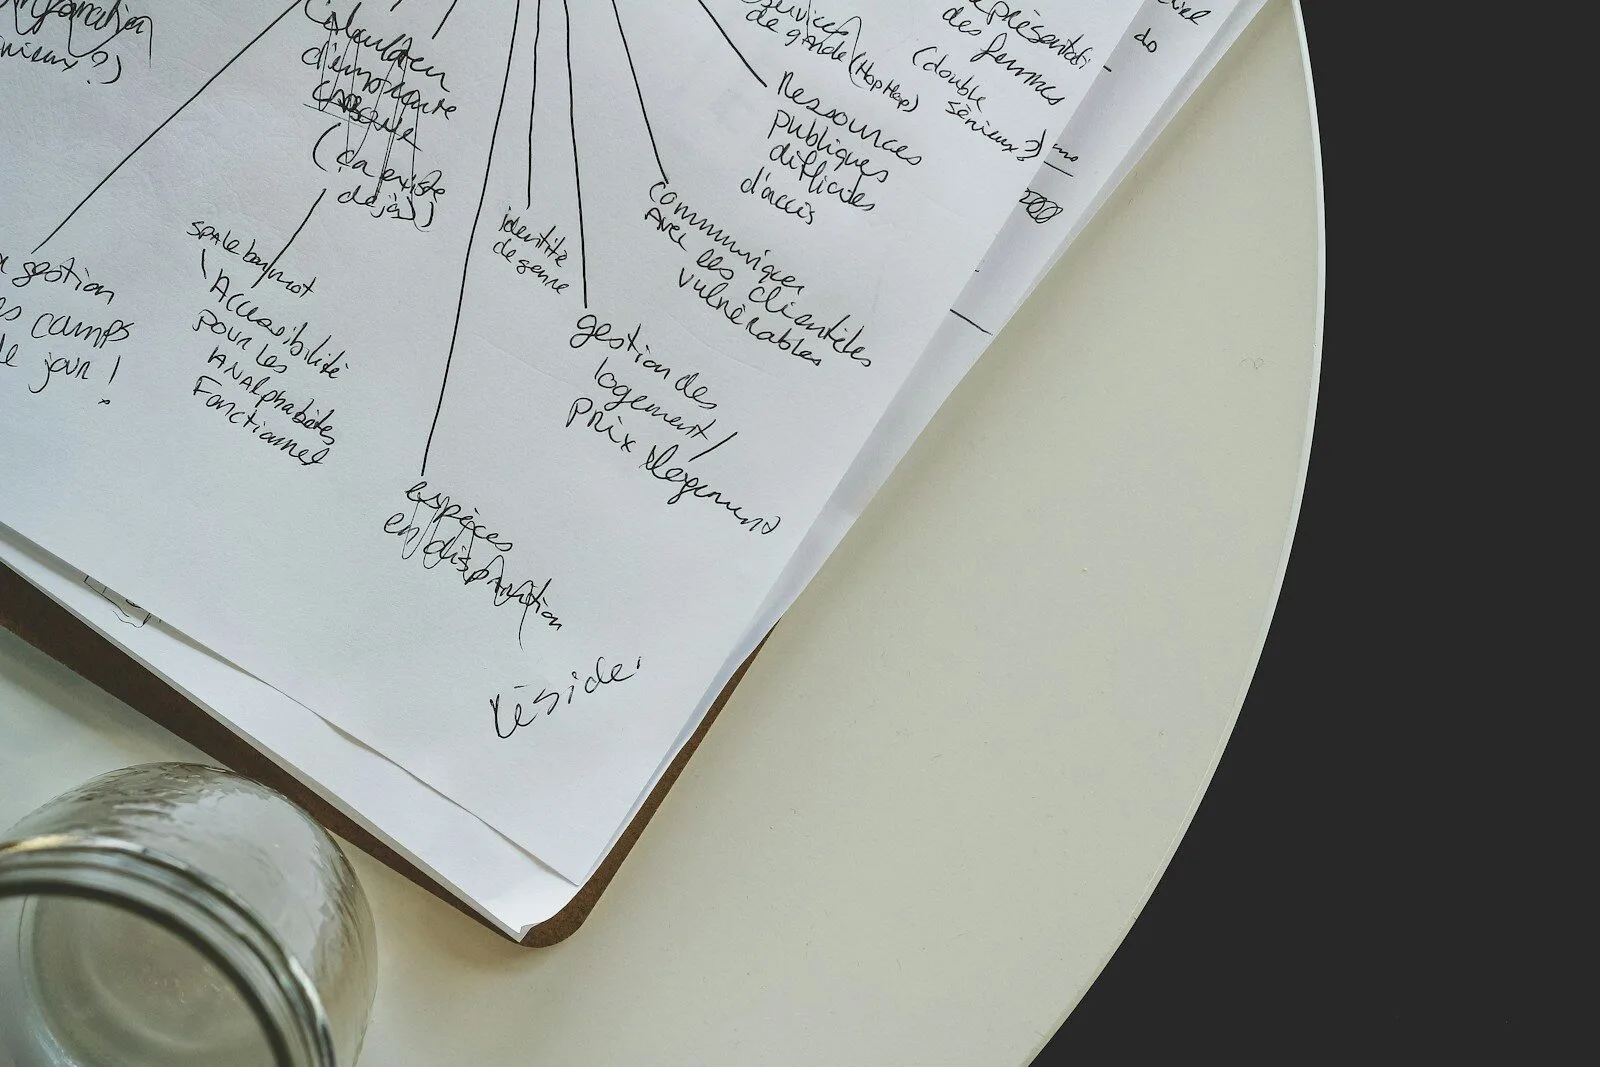 Information
(sérieux?)
Calculateur
d'empreinte
(ça existe
déjà)
services
de garde (HopHop)
représentati
des femmes
(double
sérieux?)
do
Ressources
publiques
difficiles
d'accès
communiquer
Avec les clientèles
vulnérables
identité
de genre
gestion des
logement/
prix logement
gestion
camps
jour!
Accessibilité
pour les
ANAlphabètes
Fonctionnel
espèces
en disparition